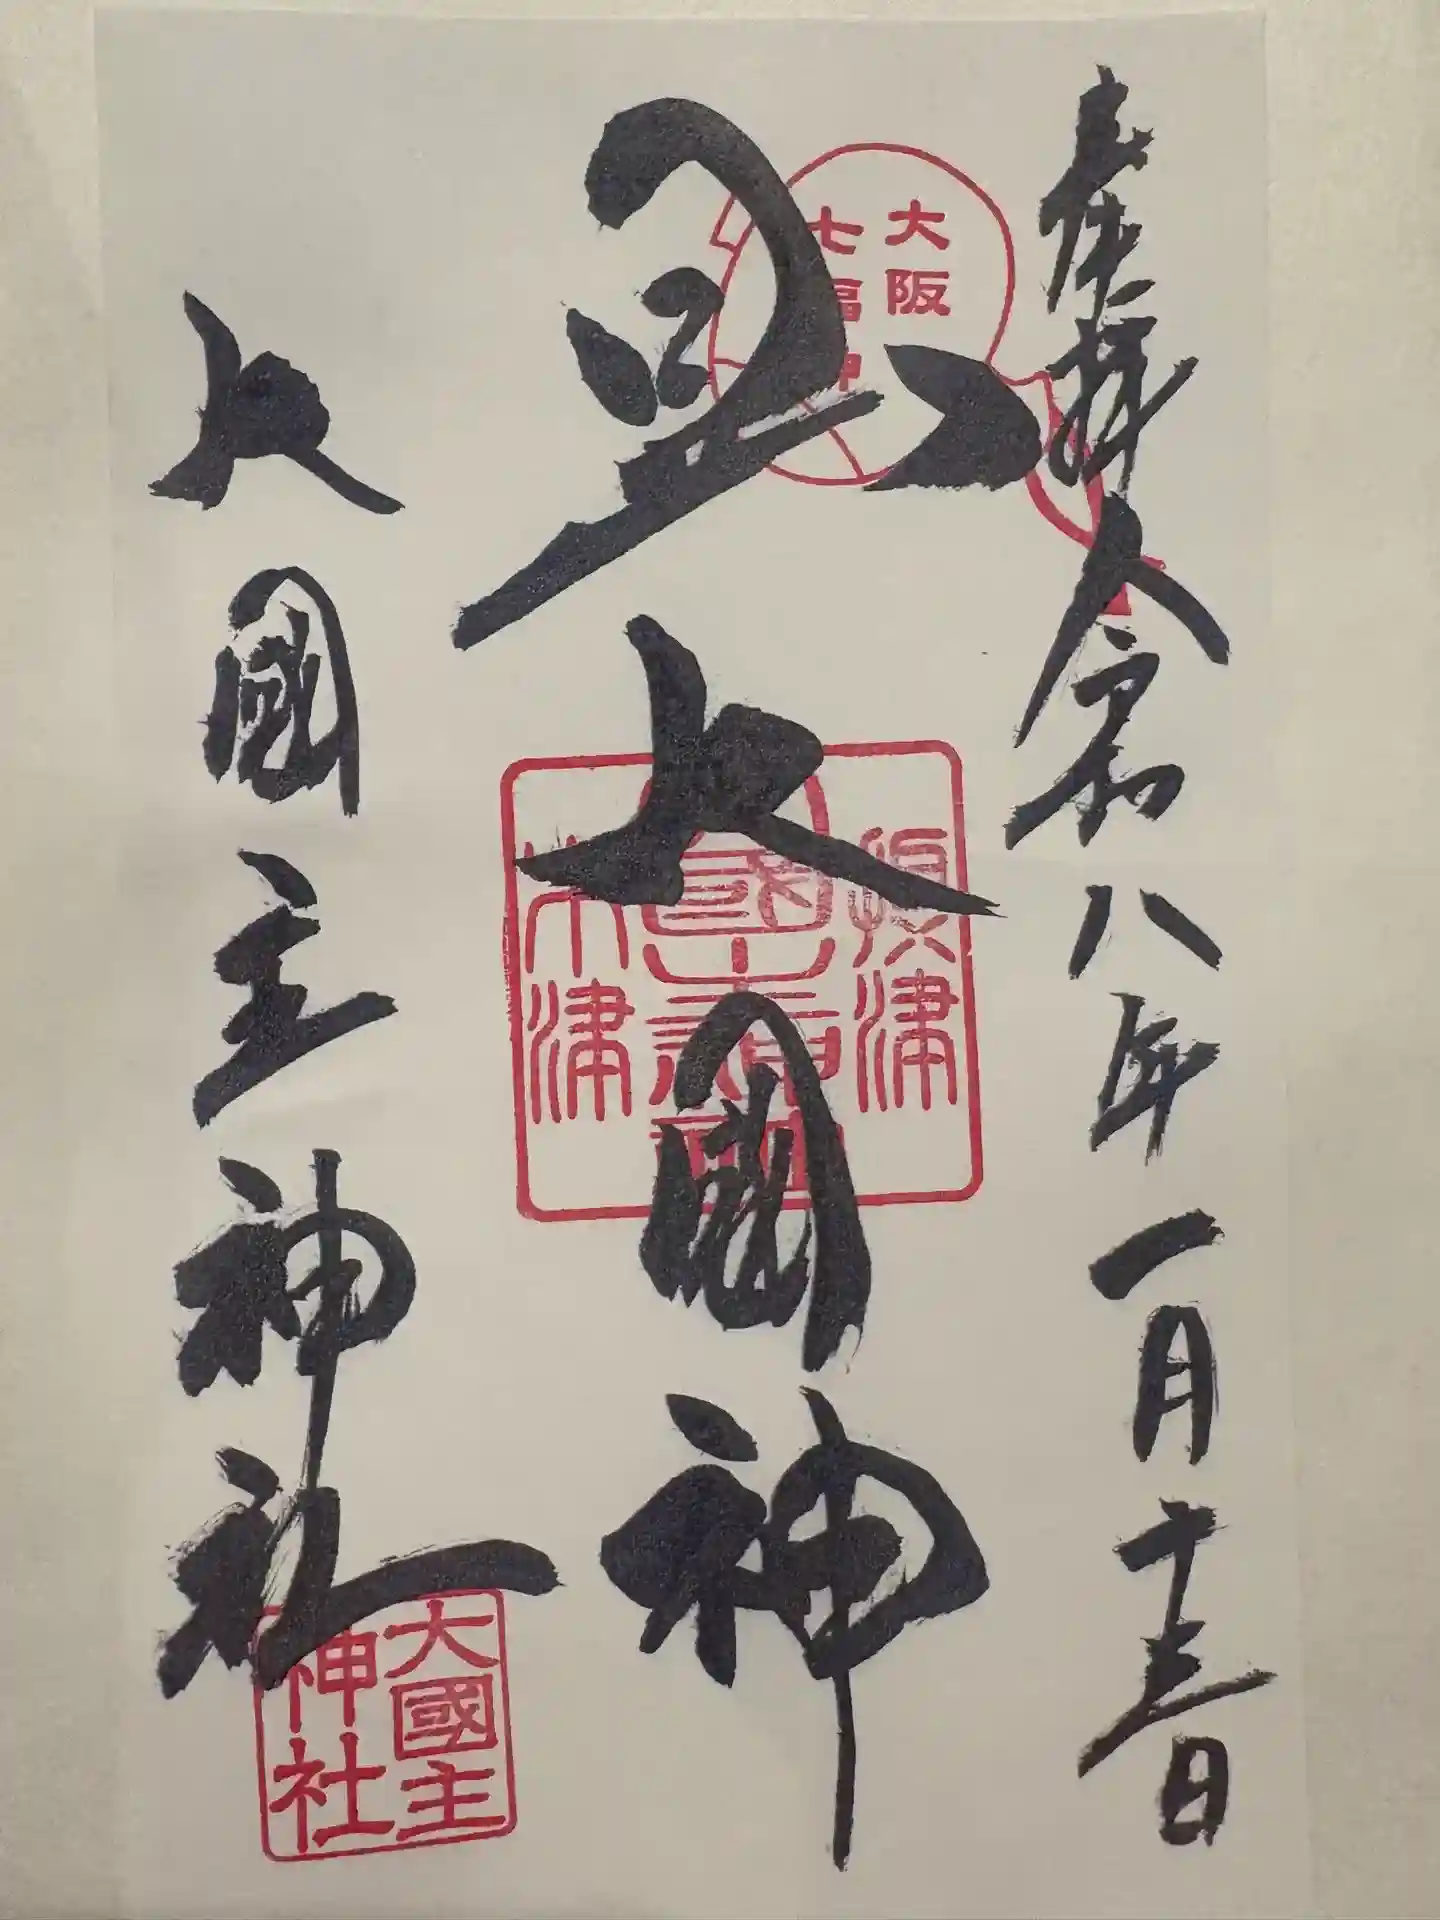 奉拝 令和八年一月十三日
大阪
七福神
大國神
木津
大國主神社
大國主
神社